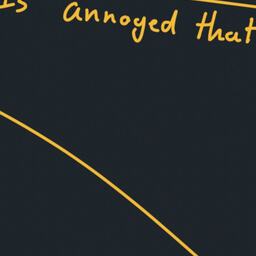 is annoyed that